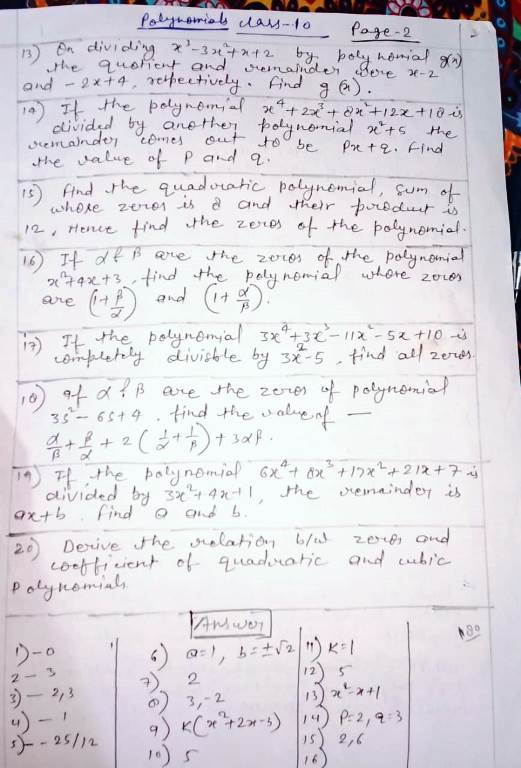 Polynomials class-10 Page-2
13) On dividing x³-3x²+x+2 by polynomial g(x)
the quotient and remainder were x-2
and -2x+4, respectively. Find g(x).
14) If the polynomial x⁴+2x³+8x²+12x+18 is
divided by another polynomial x²+5 the
remainder comes out to be Px+q. Find
the value of P and q.
15) Find the quadratic polynomial, sum of
whose zeros is 8 and their product is
12, Hence find the zeros of the polynomial.
16) If α & β are the zeros of the polynomial
x²+4x+3, find the polynomial whose zeros
are (1+β/α) and (1+α/β).
17) If the polynomial 3x⁴+3x³-11x²-5x+10 is
completely divisible by 3x²-5, find all zeros.
18) If α & β are the zeros of polynomial
3s²-6s+4, find the value of —
α/β+β/α+2(1/α+1/β)+3αβ.
19) If the polynomial 6x⁴+8x³+17x²+21x+7 is
divided by 3x²+4x+1, the remainder is
ax+b. Find a and b.
20) Derive the relation b/w zeros and
coefficient of quadratic and cubic
Polynomials
Answer
1) - 0
2 - 3
3) - 2,3
4) - 1
5) - -25/12
6) a=1, b=±√2
7) 2
8) 3,-2
9) K(x²+2x-3)
10) 5
11) K=1
12) 5
13) x²-x+1
14) P=2, q=3
15) 2,6
16)